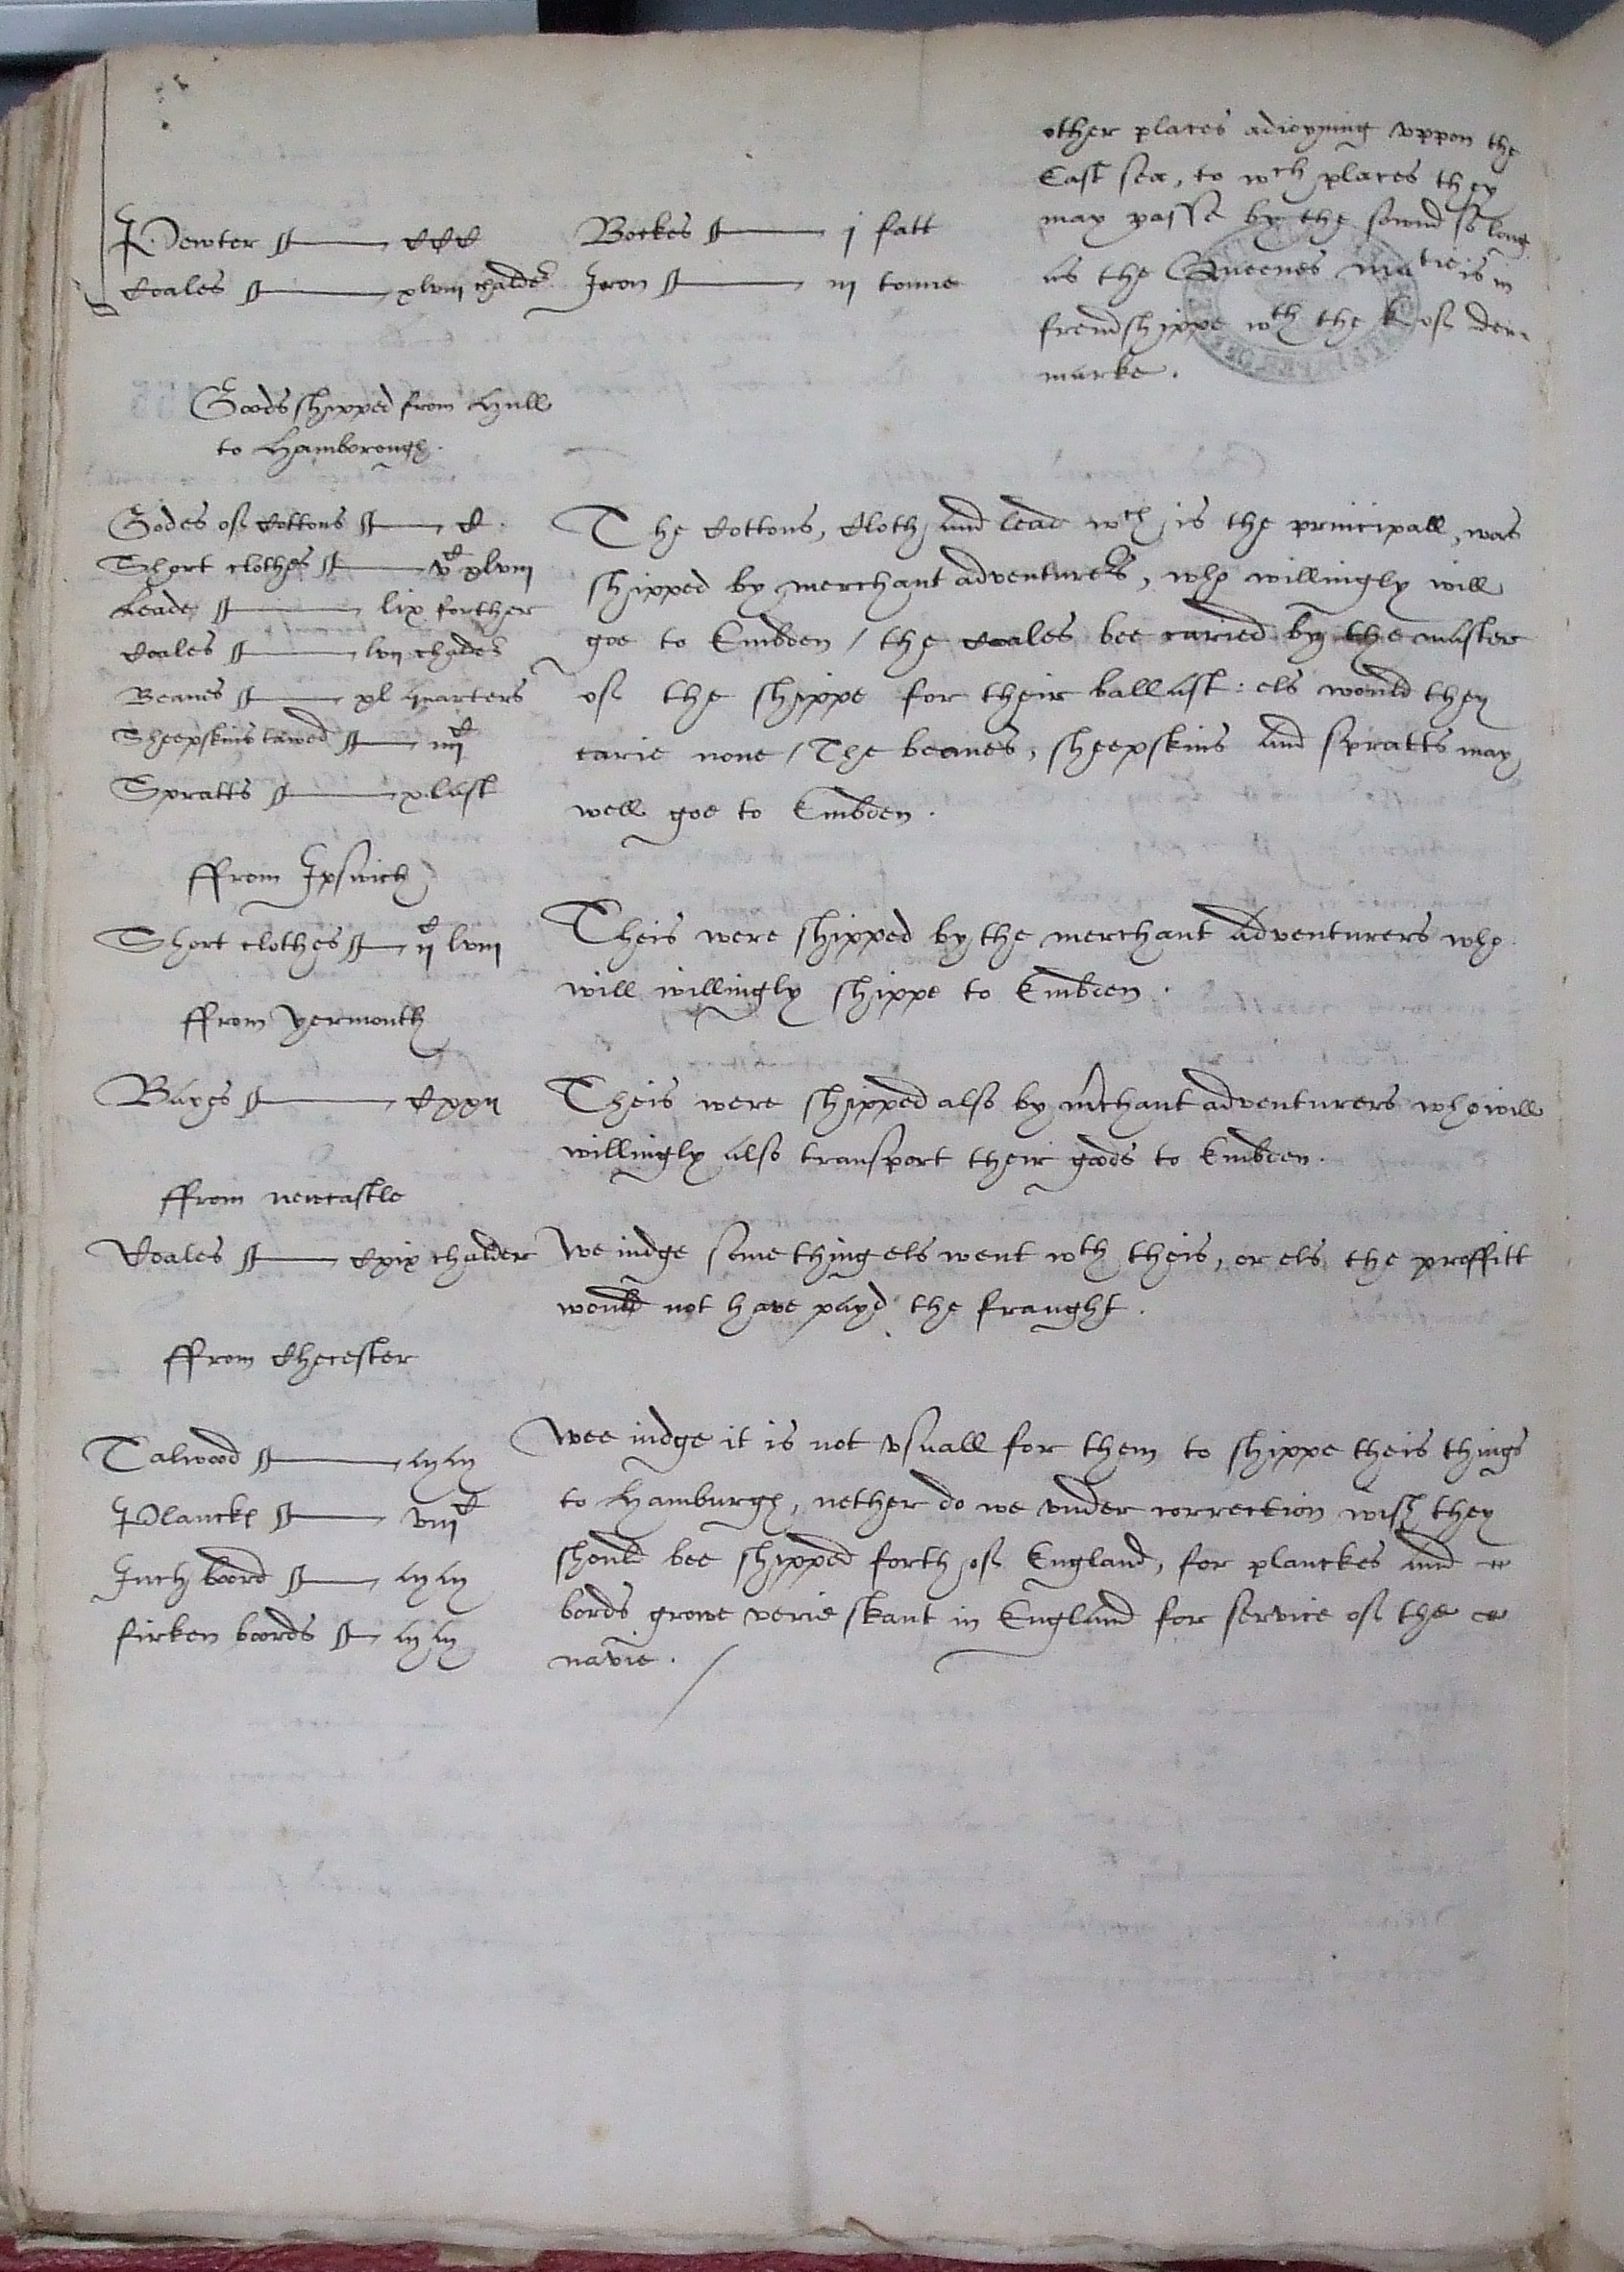 other places adioyning vppon the
East sea, to wch places they
may passe by the sownd so long
as the Queenes matie is in
frendshippe wth the K of den
marke.
Pewter CCC
Bookes j fatt
Coales xlviij chalder
Iron iij tonne
Goods shipped from Hull
to Hamborough.
Godes of Cottons C.
Short clothes vC xlviij
Leade lix fother
Coales lvij chalder
Beanes xl quarters
Sheepskins tawed iiijC
Spratts x last
The Cottons, Cloth, and lead wch is the principall, was
shipped by merchant adventurers, who willingly will
goe to Embden / the Coales bee caried by the master
of the shippe for their ballast: els would they
carie none / The beanes, sheepskins and spratts may
well goe to Embden.
ffrom Ipswich
Short clothes ijC lviij
Theis were shipped by the merchant adventurers who
will willingly shippe to Embden.
ffrom yermouth
Bayes Cxxij
Theis were shipped also by mchant adventurers who will
willingly also transport their goods to Embden.
ffrom newcastle
Coales Cxix chalder
We iudge some thing els went wth theis, or els the proffitt
would not have payd the fraught.
ffrom Checester
Talwood
Planckes viijC
Inch boord
firken boords
Wee iudge it is not vsuall for them to shippe theis things
to Hamburgh, nether do we vnder correction wish they
should bee shipped forth of England, for planckes and
bords growe verie skant in England for service of the
navie. /